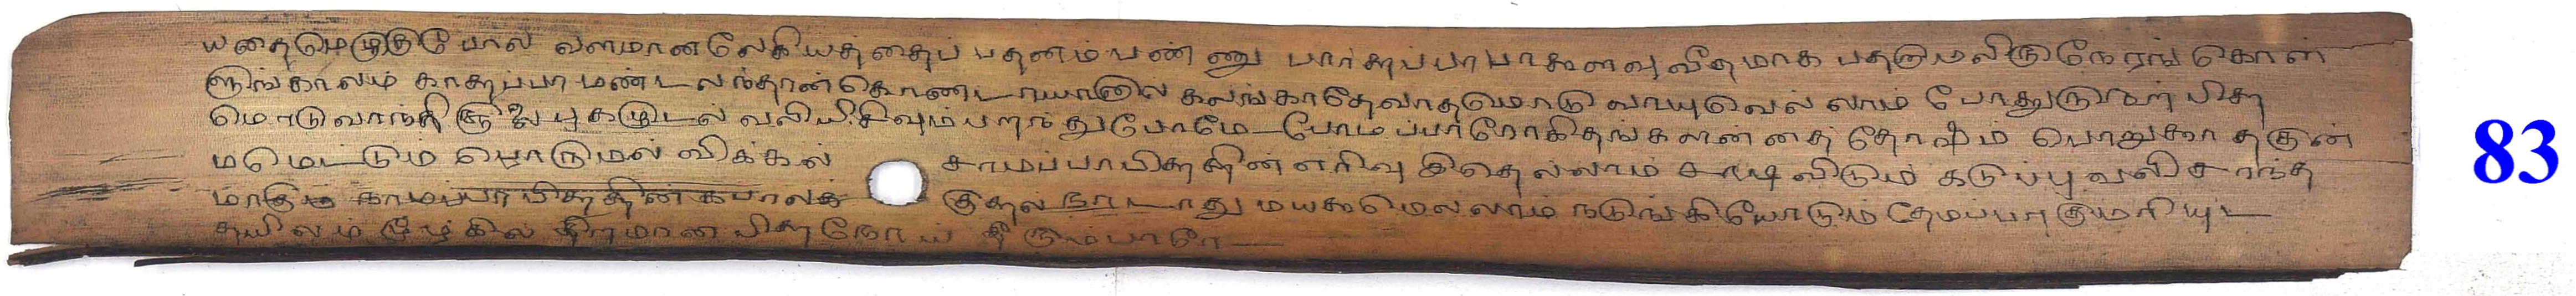 யதைமெழுகுபோல் வளமானலேகியத்தைப் பதனம்பண்ணு பார்தப்பா பாகளவு வீதமாக பதருமலிருநேரங் கொள்
ளுங்காலம் காதப்பா மண்டலந்தான்கொண்டாயானால் கலங்காதேவாதமொடு வாயுவெல்லாம் போது பித
மொடுவாந்தி சூலை புகழுடல் வலியி பறந்துபோமே போமப்பா ரோகிதங்களன்னத் தோஷம் பொறுகா தகுன்
மமெட்டும் பொருமல் விக்கல் சாமப்பா பிததின் எரிவு இதெல்லாம் விடும் கடுப்பு வலி சாந்த
மாகும் காமப்பா பிததின் கபாலக் குதல் நாடாது மயகமெல்லாம் நடுங்கியோடும் தேமப்பா குமரியுட
தயிலம் மூழ்கில் திறமான பிதநோய் தீரும்பாரே
83